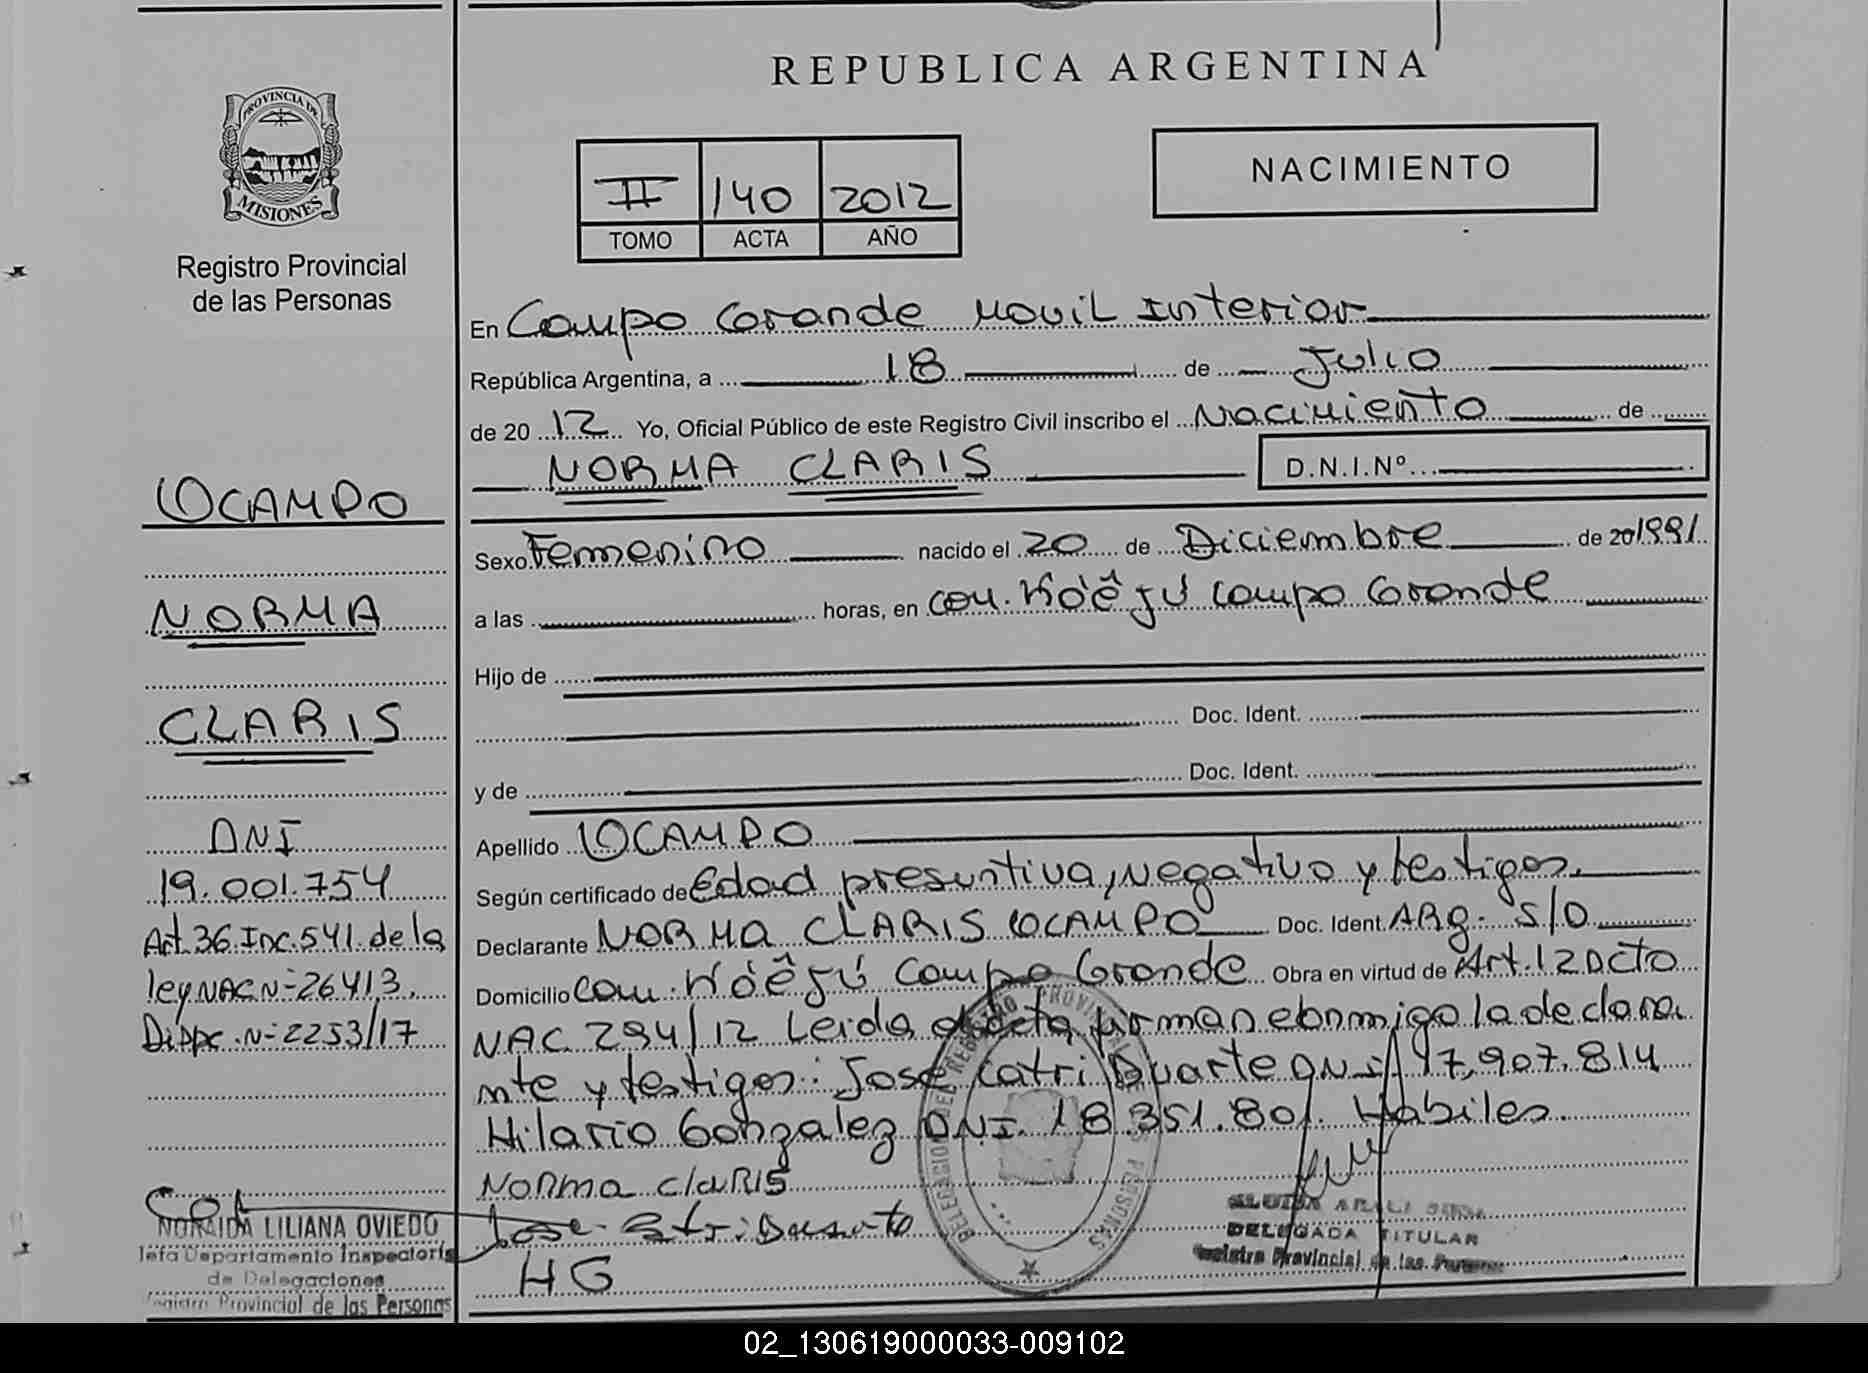 PROVINCIA DE
MISIONES
Registro Provincial
de las Personas
OCAMPO
NORMA
CLARIS
DNI
19.001.754
Art.36.Inc.541.dela
ley NAC Nº 26413.
Dippc.Nº 2253/17
NORAIDA LILIANA OVIEDO
Jefa Departamento Inspectoría
de Delegaciones
Registro Provincial de las Personas
REPUBLICA ARGENTINA
II 140 2012
TOMO ACTA AÑO
NACIMIENTO
En Campo Grande Movil Interior
República Argentina, a 18 de Julio
de 20 12 Yo, Oficial Público de este Registro Civil inscribo el Nacimiento de
NORMA CLARIS D.N.I.Nº
Sexo Femenino nacido el 20 de Diciembre de 20 1991
a las horas, en Com. Ka'a Campo Grande
Hijo de
Doc. Ident.
y de Doc. Ident.
Apellido OCAMPO
Según certificado de Edad presuntiva, Negativo y testigos.
Declarante NORMA CLARIS OCAMPO Doc. Ident. ARG. S/D
Domicilio Com. Campo Grande Obra en virtud de Art.12 DCTO
NAC 294/12 Leida el acta firman conmigo la declara
nte y testigos: José Catri Duarte DNI 17.907.814
Hilario Gonzalez DNI. 18.351.801. Habiles
Norma claRIS
Jose Catri Duarte
HG
DELEGACION DEL REGISTRO PROVINCIAL DE LAS PERSONAS
DELEGADA TITULAR
Registro Provincial de las Personas
02_130619000033-009102